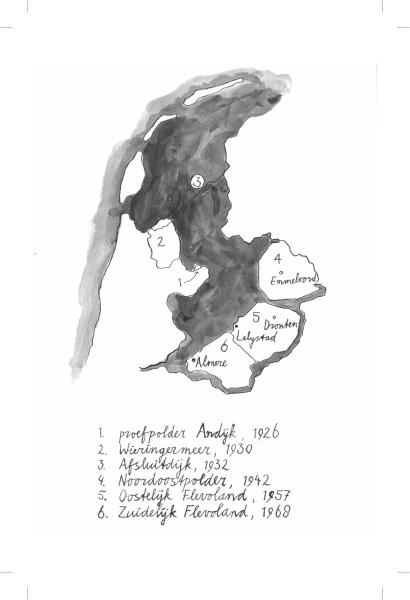 3
2
1
4
Emmeloord
5
Dronten
Lelystad
6
Almere
1. proefpolder Andijk, 1926
2. Wieringermeer, 1930
3. Afsluitdijk, 1932
4. Noordoostpolder, 1942
5. Oostelijk Flevoland, 1957
6. Zuidelijk Flevoland, 1968